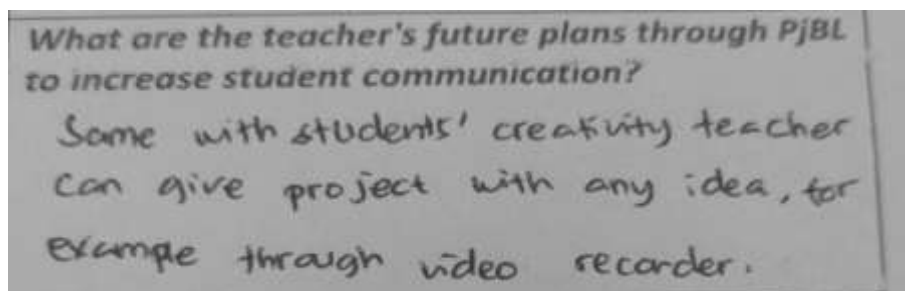 What are the teacher's future plans through PjBL
to increase student communication?
Same with students' creativity teacher
can give project with any idea, for
example through video recorder.